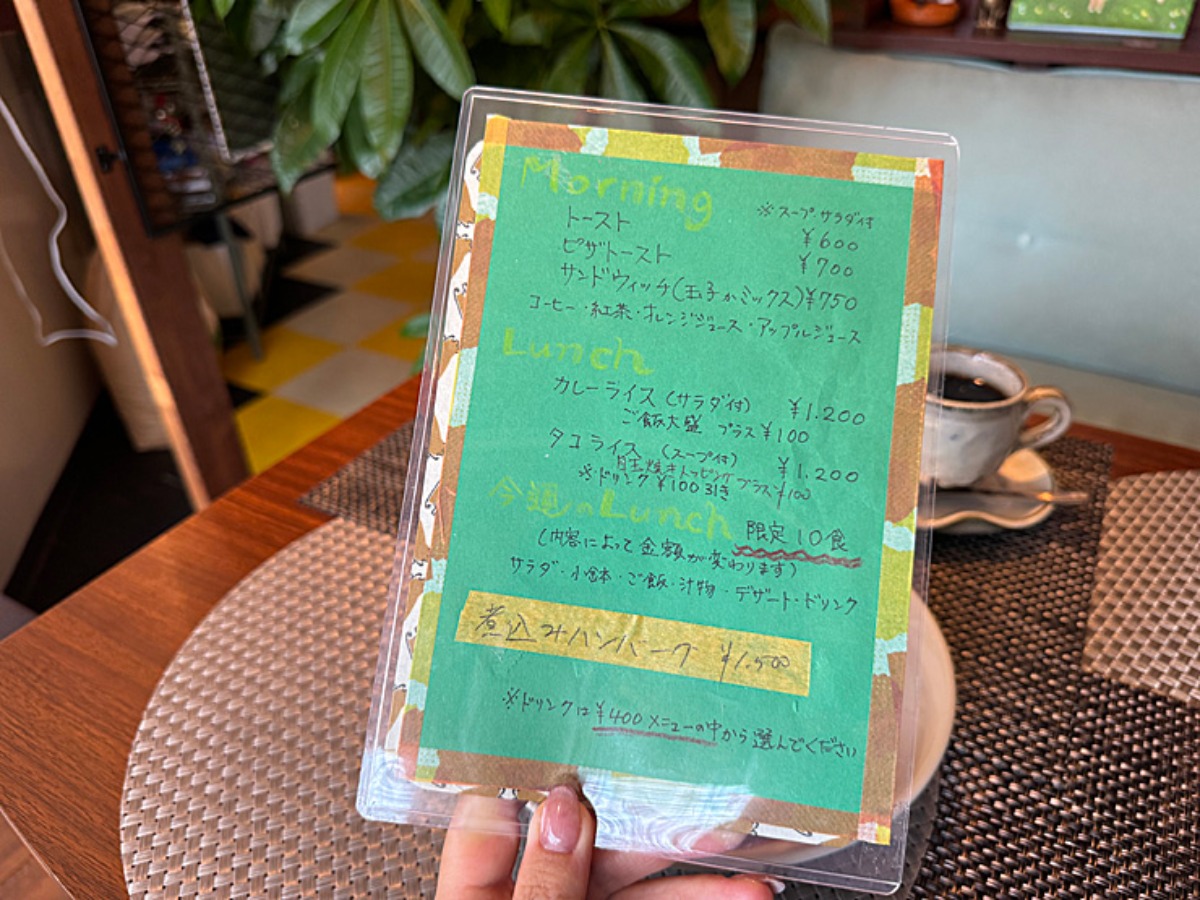 Morning
※スープサラダ付
トースト ¥600
ピザトースト ¥700
サンドウィッチ(玉子かミックス)¥750
コーヒー・紅茶・オレンジジュース・アップルジュース
Lunch
カレーライス(サラダ付) ¥1.200
ご飯大盛 プラス¥100
タコライス(スープ付) ¥1.200
目玉焼きトッピングプラス¥100
※ドリンク¥100引き
今週のLunch 限定10食
(内容によって金額が変わります)
サラダ・小鉢・ご飯・汁物・デザート・ドリンク
煮込みハンバーグ ¥1.500
※ドリンクは¥400メニューの中から選んでください